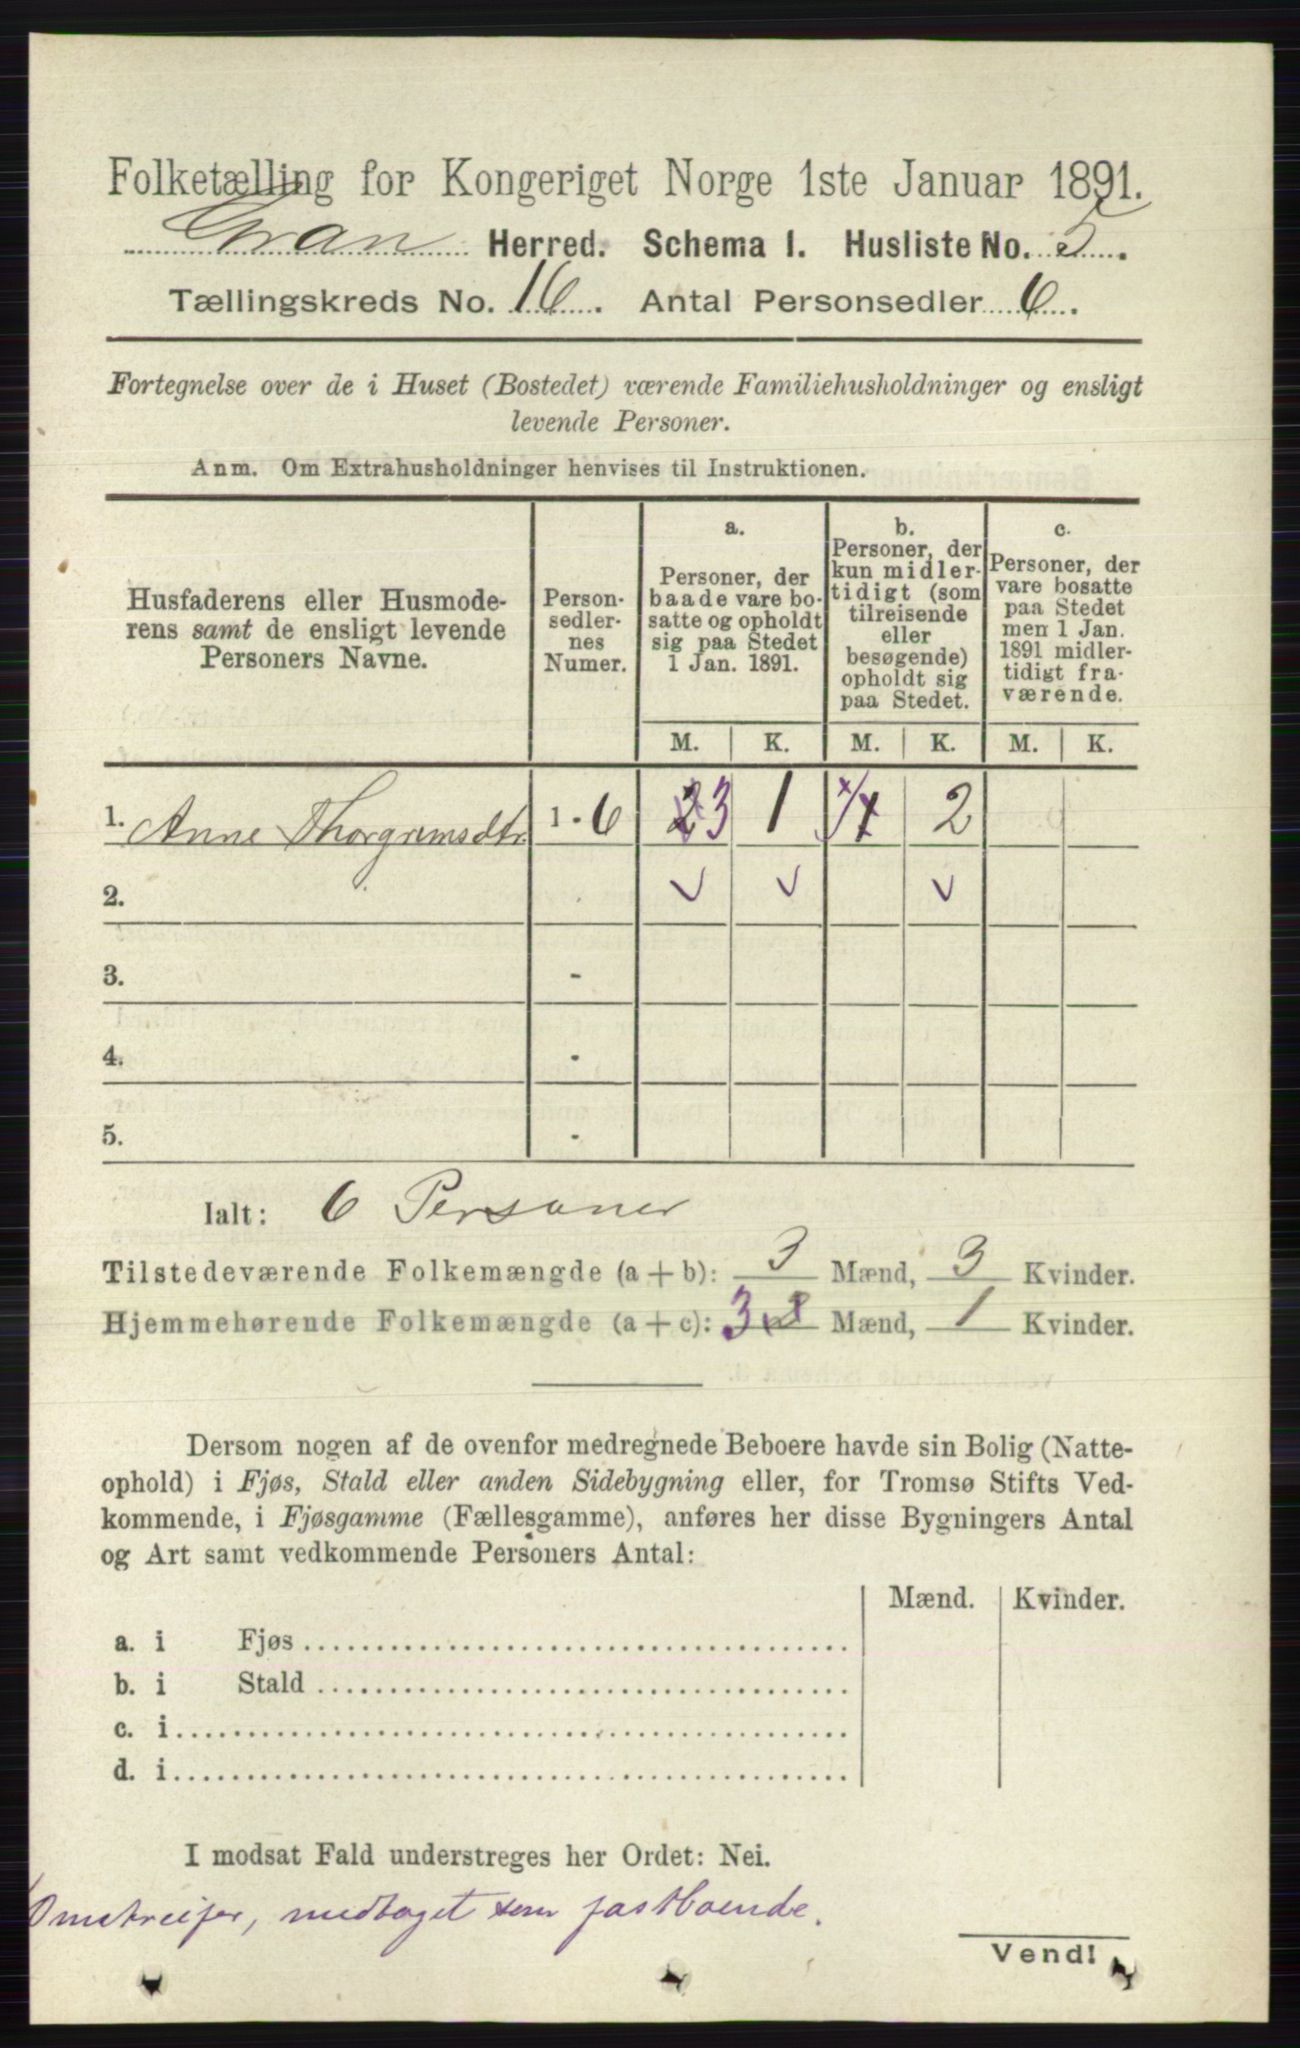 Folketælling for Kongeriget Norge 1ste Januar 1891.
Gran Herred. Schema I. Husliste No. 5.
Tællingskreds No. 16. Antal Personsedler 6.
Fortegnelse over de i Huset (Bostedet) værende Familiehusholdninger og ensligt
levende Personer.
Anm. Om Extrahusholdninger henvises til Instruktionen.
Husfaderens eller Husmode-
rens samt de ensligt levende
Personers Navne.
Person-
sedler-
nes
Numer.
a.
Personer, der
baade vare bo-
satte og opholdt
sig paa Stedet
1 Jan. 1891.
b.
Personer, der
kun midler-
tidigt (som
tilreisende
eller
besøgende)
opholdt sig
paa Stedet.
c.
Personer, der
vare bosatte
paa Stedet
men 1 Jan.
1891 midler-
tidigt fra-
værende.
M. K. M. K. M. K.
1. Anne Thorgrimsdtr. 1 - 6 2 3 1 x/1 2
2.
3. -
4. -
5. -
Ialt: 6 Personer
Tilstedeværende Folkemængde (a + b): 3 Mænd, 3 Kvinder.
Hjemmehørende Folkemængde (a + c): 3 2 Mænd, 1 Kvinder.
Dersom nogen af de ovenfor medregnede Beboere havde sin Bolig (Natte-
ophold) i Fjøs, Stald eller anden Sidebygning eller, for Tromsø Stifts Ved-
kommende, i Fjøsgamme (Fællesgamme), anføres her disse Bygningers Antal
og Art samt vedkommende Personers Antal:
Mænd. Kvinder.
a. i Fjøs
b. i Stald
c. i
d. i
I modsat Fald understreges her Ordet: Nei.
Omstreifer, medtaget som fastboende.
Vend!